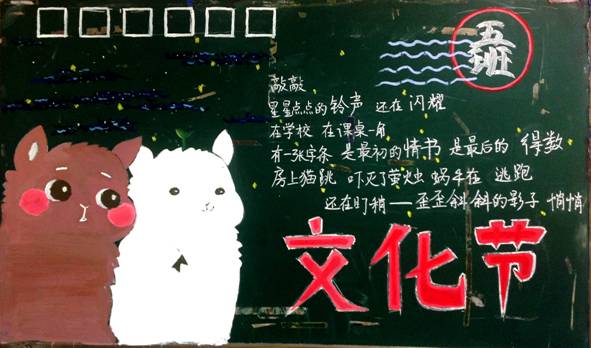 五班
敲敲
星星点点的铃声 还在 闪耀
在学校 在课桌一角
有一张字条 是最初的情书 是最后的 得数
房上猫跳 吓灭了萤烛 蜗牛在 逃跑
还在盯稍——歪歪斜斜的影子 悄悄
文化节